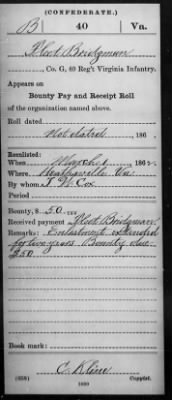 (CONFEDERATE.)
B 40 Va.
Fleet Bridgman
, Co. G, 40 Reg't Virginia Infantry.
Appears on
Bounty Pay and Receipt Roll
of the organization named above.
Roll dated
Not dated, 186 .
Reenlisted:
When March 1, 186
Where Heathsville Va
By whom J. W. Cox
Period
Bounty, $ 50
Received payment Fleet Bridgman
Remarks: Enlistment extended
for two years. Bounty due
$50
Book mark:
C. Kline
(658) 1000 Copyist.